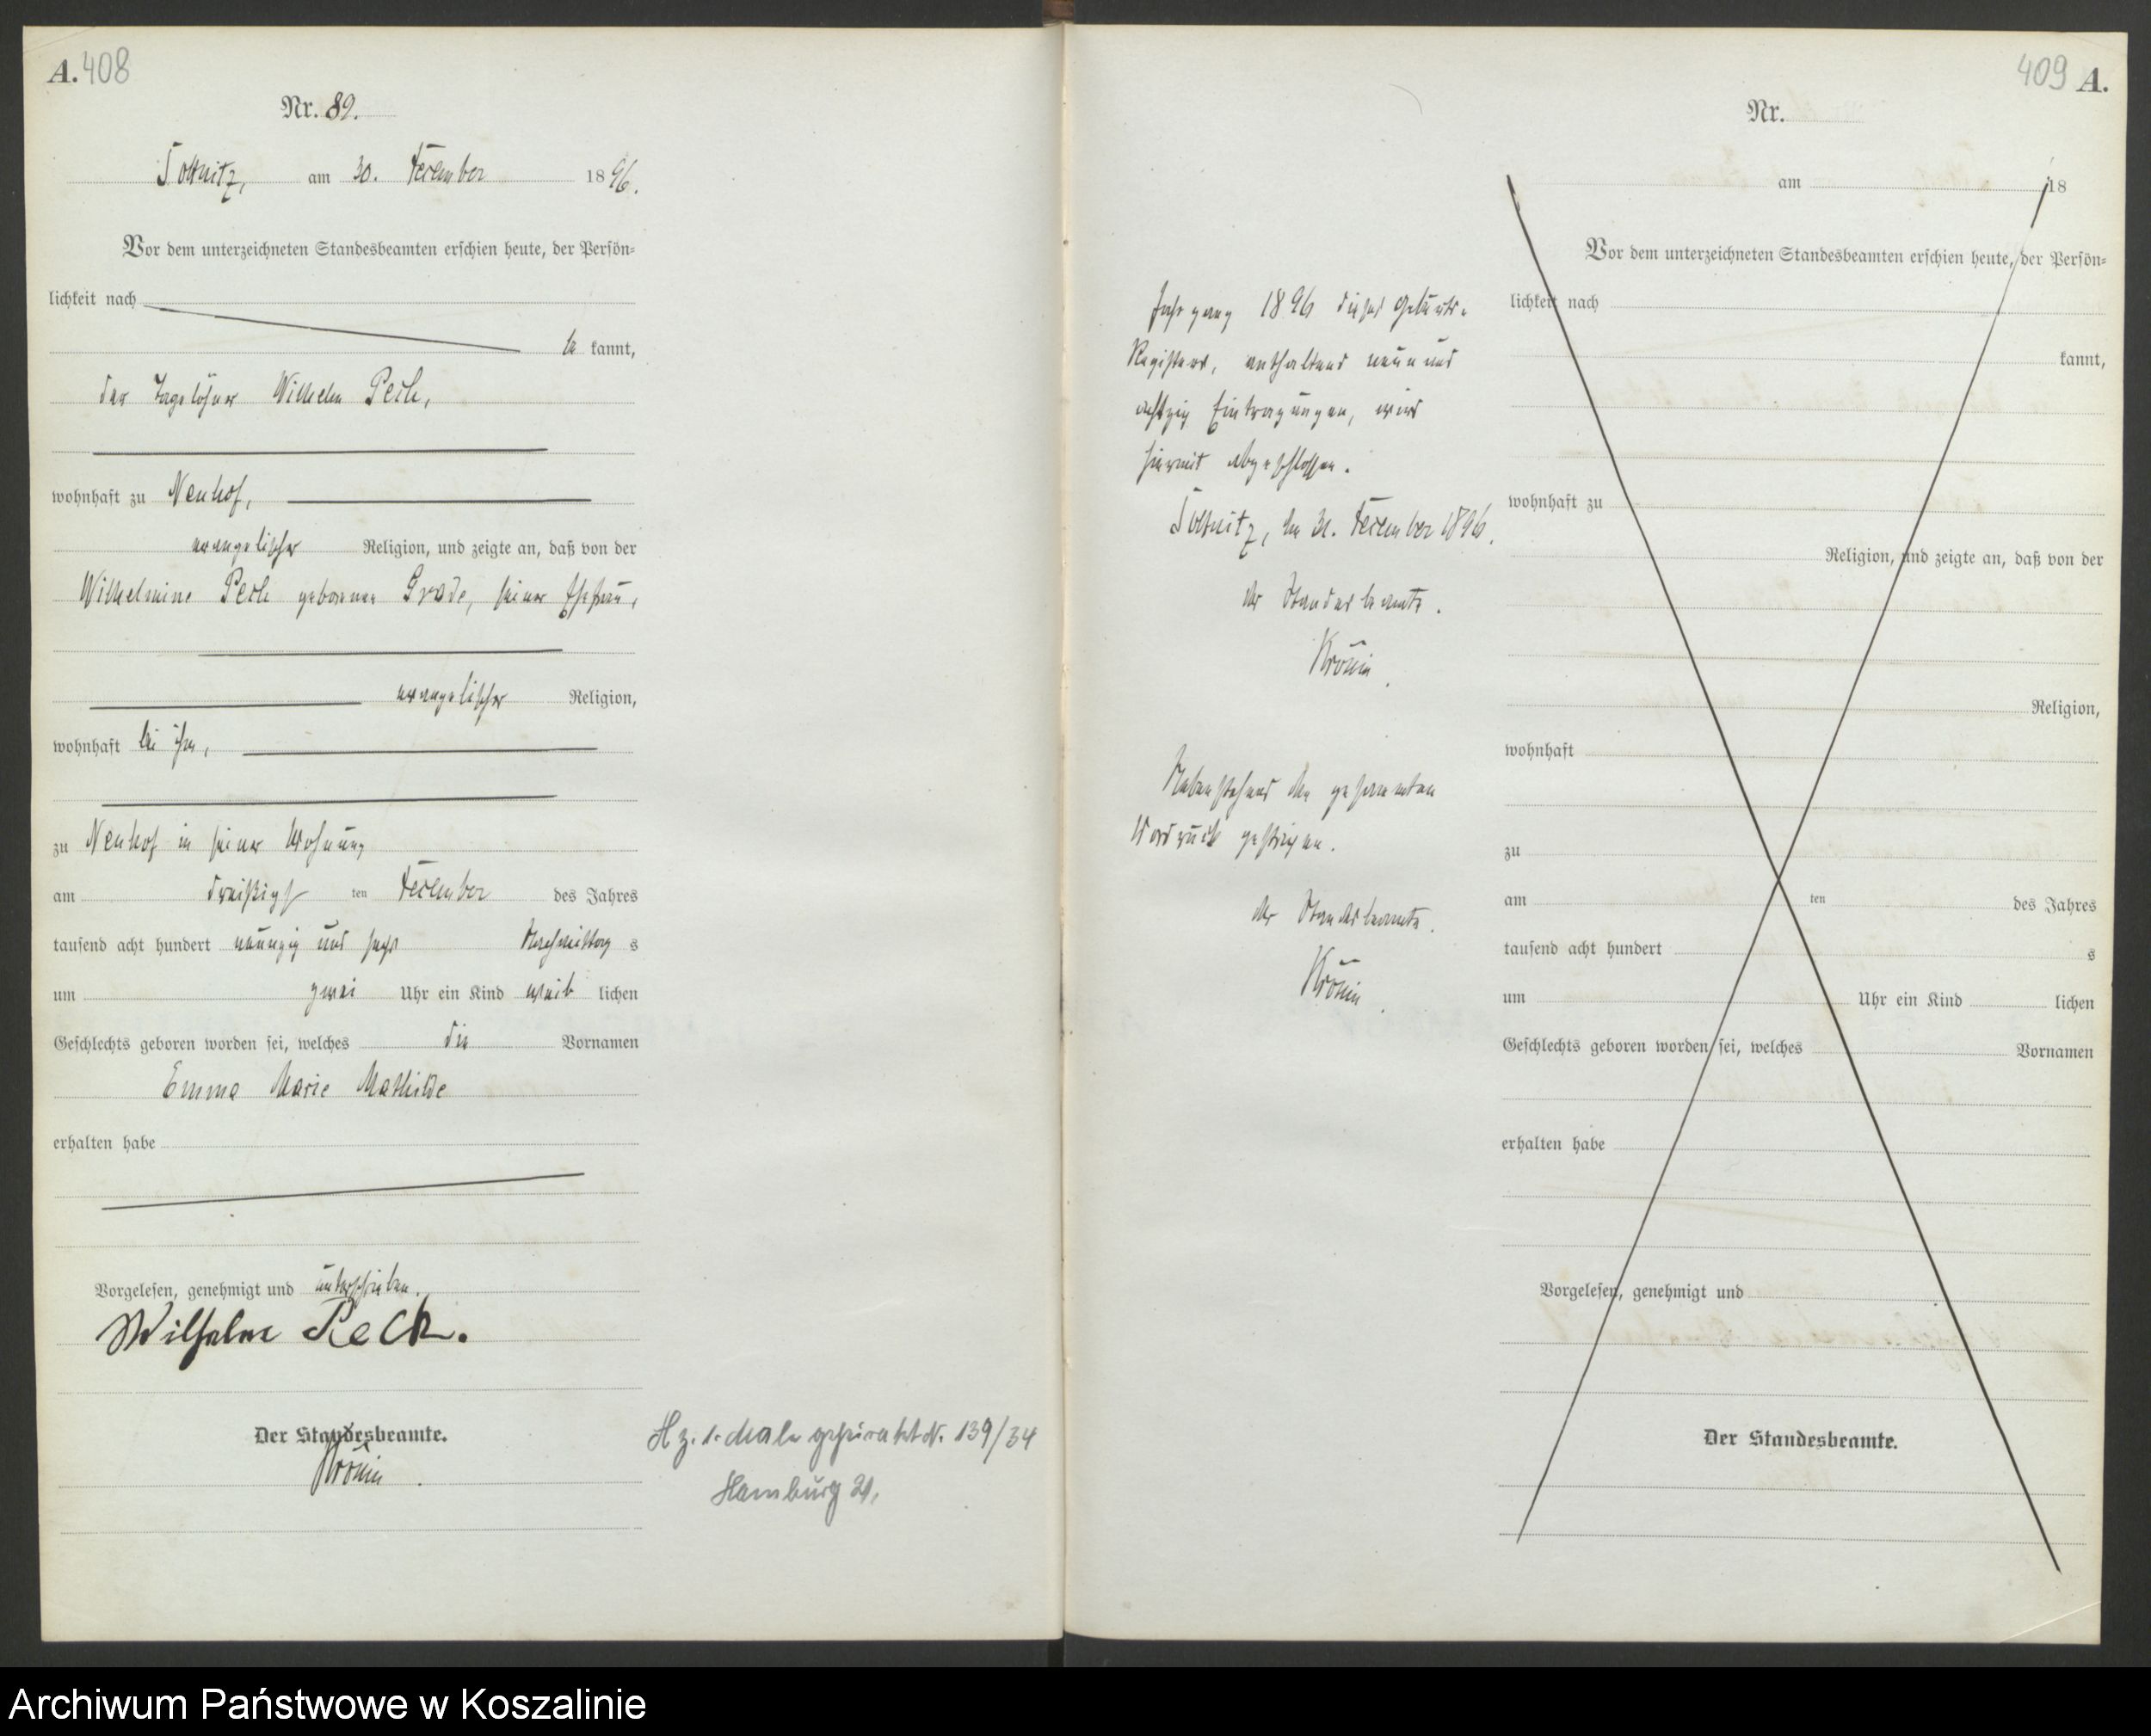 A. 408
Nr. 89.
Soltnitz, am 30. December 1896.
Vor dem unterzeichneten Standesbeamten erschien heute, der Persön-
lichkeit nach
be kannt,
der Tagelöhner Wilhelm Peck,
wohnhaft zu Neuhof,
evangelischer Religion, und zeigte an, daß von der
Wilhelmine Peck geborenen Grade, seiner Ehefrau,
evangelischer Religion,
wohnhaft bei ihm,
zu Neuhof in seiner Wohnung
am dreißigst ten December des Jahres
tausend acht hundert neunzig und sechs Nachmittag s
um zwei Uhr ein Kind weib lichen
Geschlechts geboren worden sei, welches die Vornamen
Emma Marie Mathilde
erhalten habe
Vorgelesen, genehmigt und unterschrieben.
Wilhelm Peck.
Der Standesbeamte.
Hz. 1. Male geheiratet N. 139/34
Hamburg 21,
409 A.
Jahrgang 1896 dieses Geburts-
Registers, enthaltend neun und
achtzig Eintragungen, wird
hiermit abgeschlossen.
Soltnitz, den 31. December 1896.
Der Standesbeamte.
Nebenstehend den gesammten
Vordruck gestrichen.
Der Standesbeamte.
Nr.
am 18
Vor dem unterzeichneten Standesbeamten erschien heute, der Persön-
lichkeit nach
kannt,
wohnhaft zu
Religion, und zeigte an, daß von der
Religion,
wohnhaft
zu
am ten des Jahres
tausend acht hundert s
um Uhr ein Kind lichen
Geschlechts geboren worden sei, welches Vornamen
erhalten habe
Vorgelesen, genehmigt und
Der Standesbeamte.
Archiwum Państwowe w Koszalinie